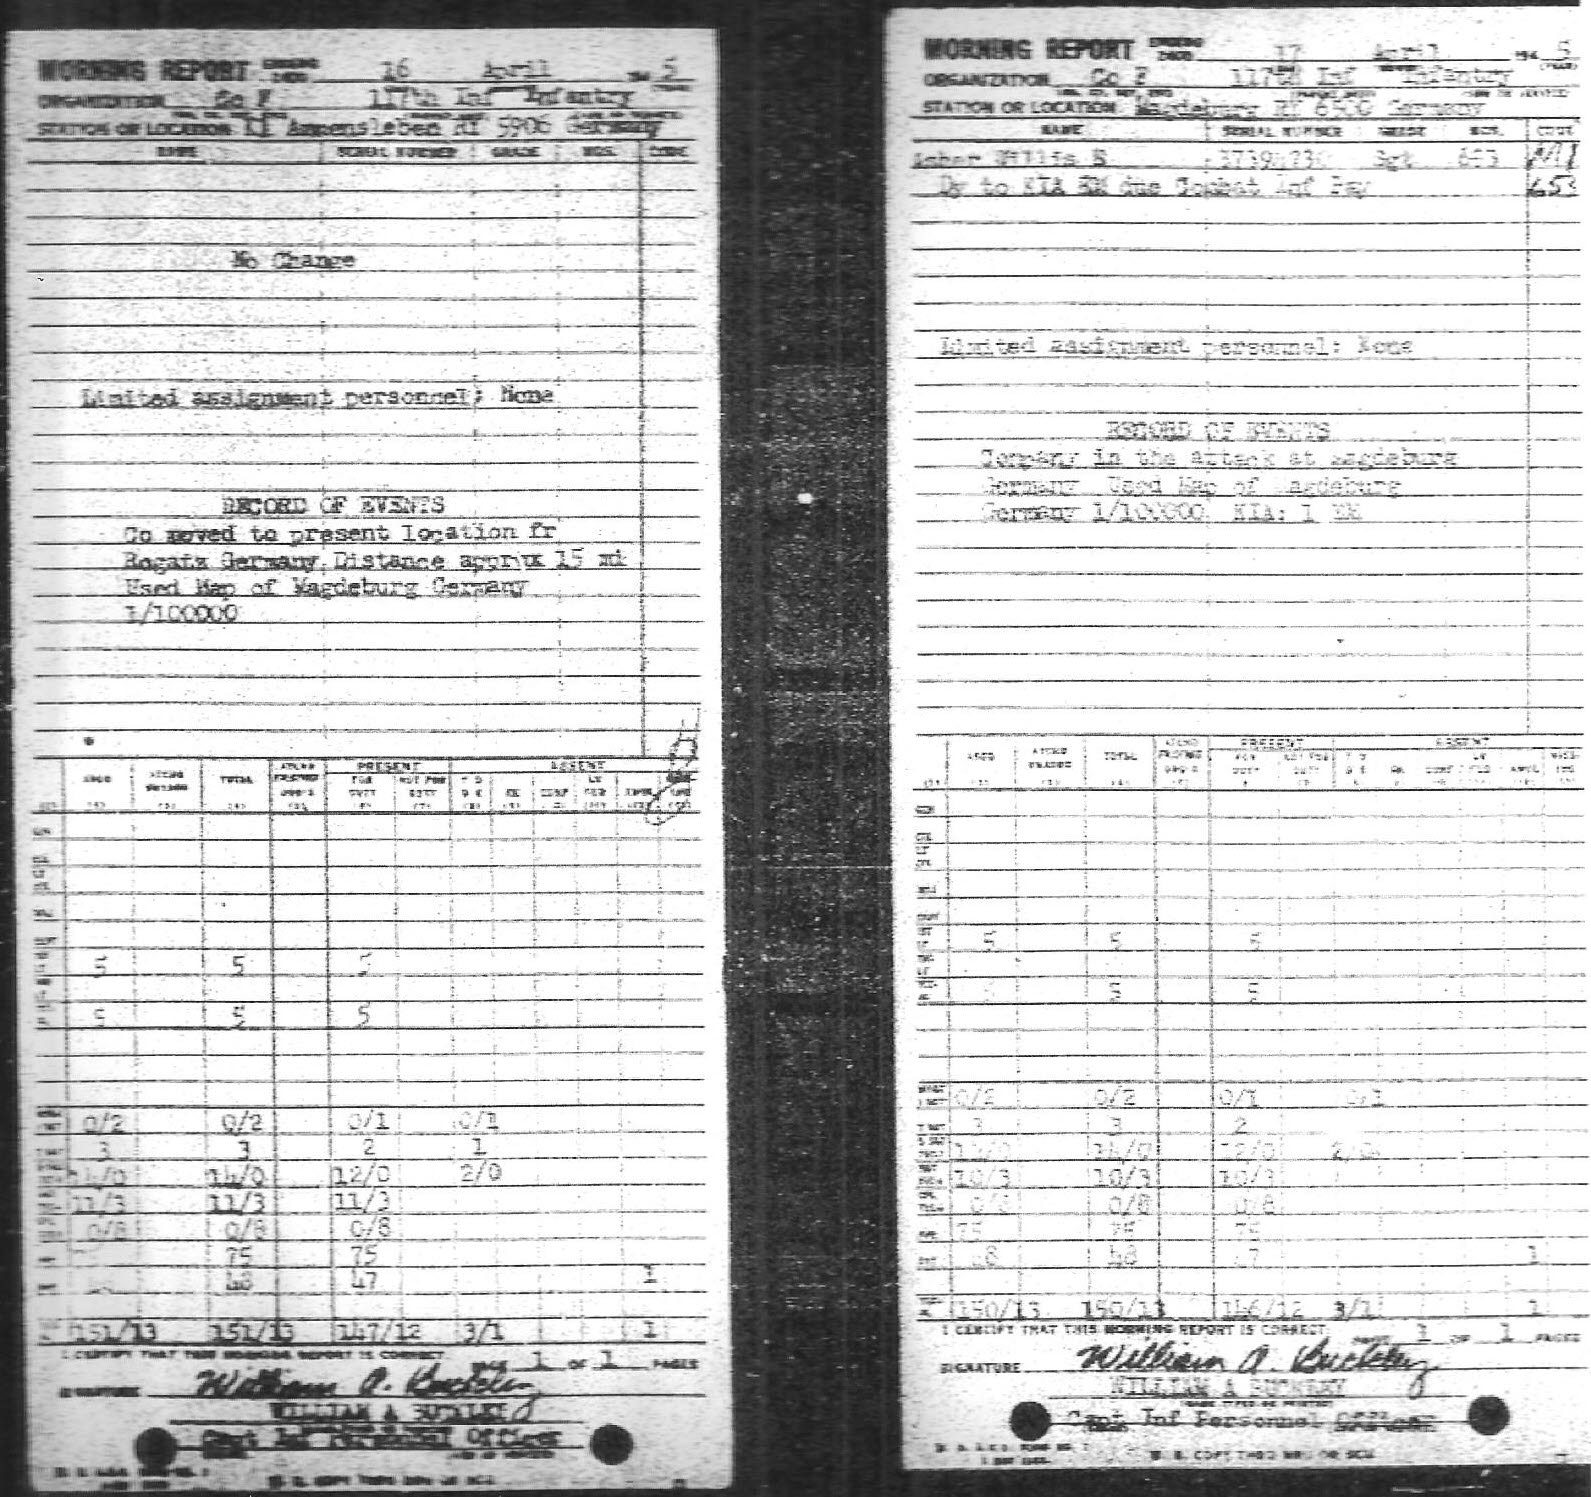 MORNING REPORT ENDING 2400 16 April 194 5
ORGANIZATION Co F 117th Inf Infantry
STATION OR LOCATION Kl Ammensleben RF 5906 Germany
NAME SERIAL NUMBER GRADE MOS. CODE
No Change
Limited assignment personnel: None
RECORD OF EVENTS
Co moved to present location fr
Rogatz Germany Distance approx 15 mi
Used Map of Magdeburg Germany
1/100000
ASGD TOTAL PRESENT ABSENT
5 5 5
5 5 5
0/2 0/2 0/1 0/1
3 3 2 1
14/0 14/0 12/0 2/0
11/3 11/3 11/3
0/8 0/8 0/8
75 75
48 47 1
151/13 151/13 147/12 3/1 1
I CERTIFY THAT THIS MORNING REPORT IS CORRECT
PAGE 1 OF 1 PAGES
SIGNATURE William A. Buckley
WILLIAM A BUCKLEY
Capt Inf Personnel Officer
MORNING REPORT ENDING 2400 17 April 194 5
ORGANIZATION Co F 117th Inf Infantry
STATION OR LOCATION Magdeburg RF 6500 Germany
NAME SERIAL NUMBER GRADE MOS. CODE
Willis Sgt 653
Dy to KIA EM due Combat Inf Pay 653
Limited assignment personnel: None
RECORD OF EVENTS
Company in the attack at Magdeburg
Germany Used Map of Magdeburg
Germany 1/100000 KIA: 1 EM
ASGD TOTAL PRESENT ABSENT
5 5 5
5 5
0/2 0/2 0/1 0/1
3 3 2
14/0 14/0 12/0 2/0
10/3 10/3 10/3
0/8 0/8 0/8
75 75 75
48 48 47 1
150/13 150/13 146/12 3/1 1
I CERTIFY THAT THIS MORNING REPORT IS CORRECT
PAGE 1 OF 1 PAGES
SIGNATURE William A. Buckley
WILLIAM A BUCKLEY
Capt Inf Personnel Officer